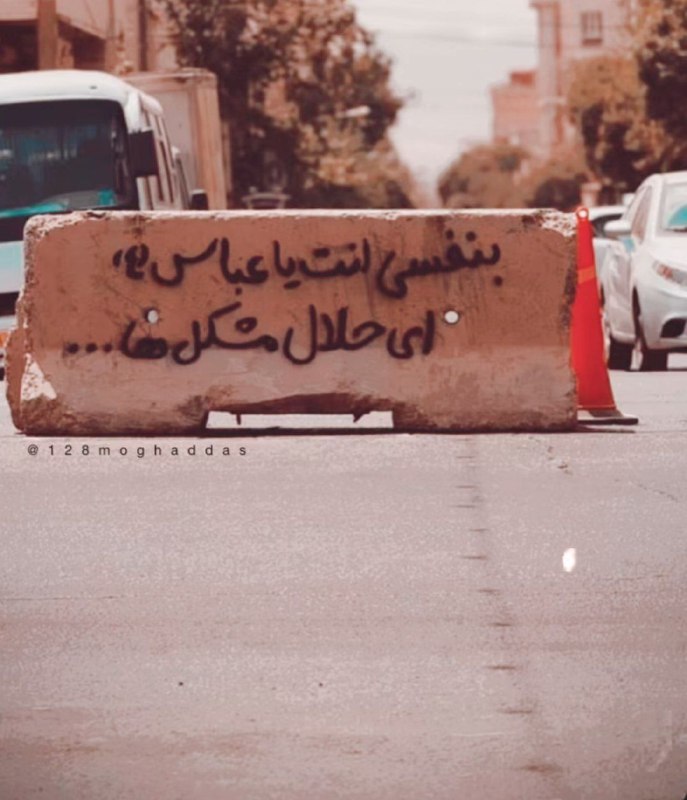 بنفسی انت یا عباس ؑ
ای حلال مشکل ها...
@128moghaddas